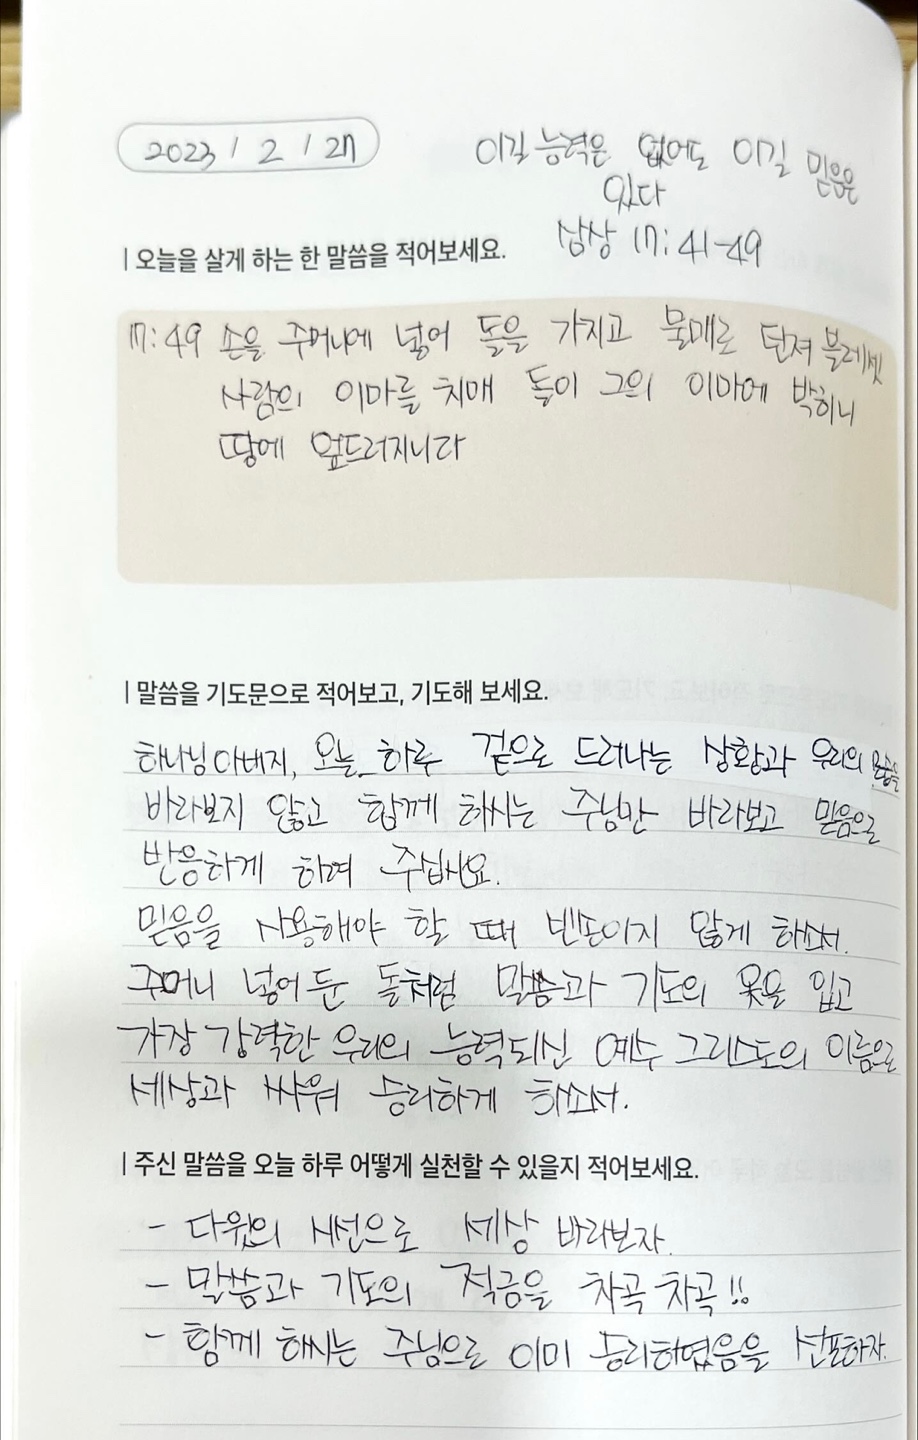 2023 / 2 / 27
이길 능력은 없어도 이길 믿음은
있다
삼상 17:41-49
| 오늘을 살게 하는 한 말씀을 적어보세요.
17:49 손을 주머니에 넣어 돌을 가지고 물매로 던져 블레셋
사람의 이마를 치매 돌이 그의 이마에 박히니
땅에 엎드러지니라
| 말씀을 기도문으로 적어보고, 기도해 보세요.
하나님 아버지, 오늘 하루 겉으로 드러나는 상황과 우리의 모습을
바라보지 않고 함께 하시는 주님만 바라보고 믿음으로
반응하게 하여 주십시요.
믿음을 사용해야 할 때 빈손이지 않게 하소서.
주머니 넣어 둔 돌처럼 말씀과 기도의 옷을 입고
가장 강력한 우리의 능력되신 예수 그리스도의 이름으로
세상과 싸워 승리하게 하소서.
| 주신 말씀을 오늘 하루 어떻게 실천할 수 있을지 적어보세요.
- 다윗의 시선으로 세상 바라보자.
- 말씀과 기도의 적금을 차곡차곡!!
- 함께 하시는 주님으로 이미 승리하였음을 선포하자.